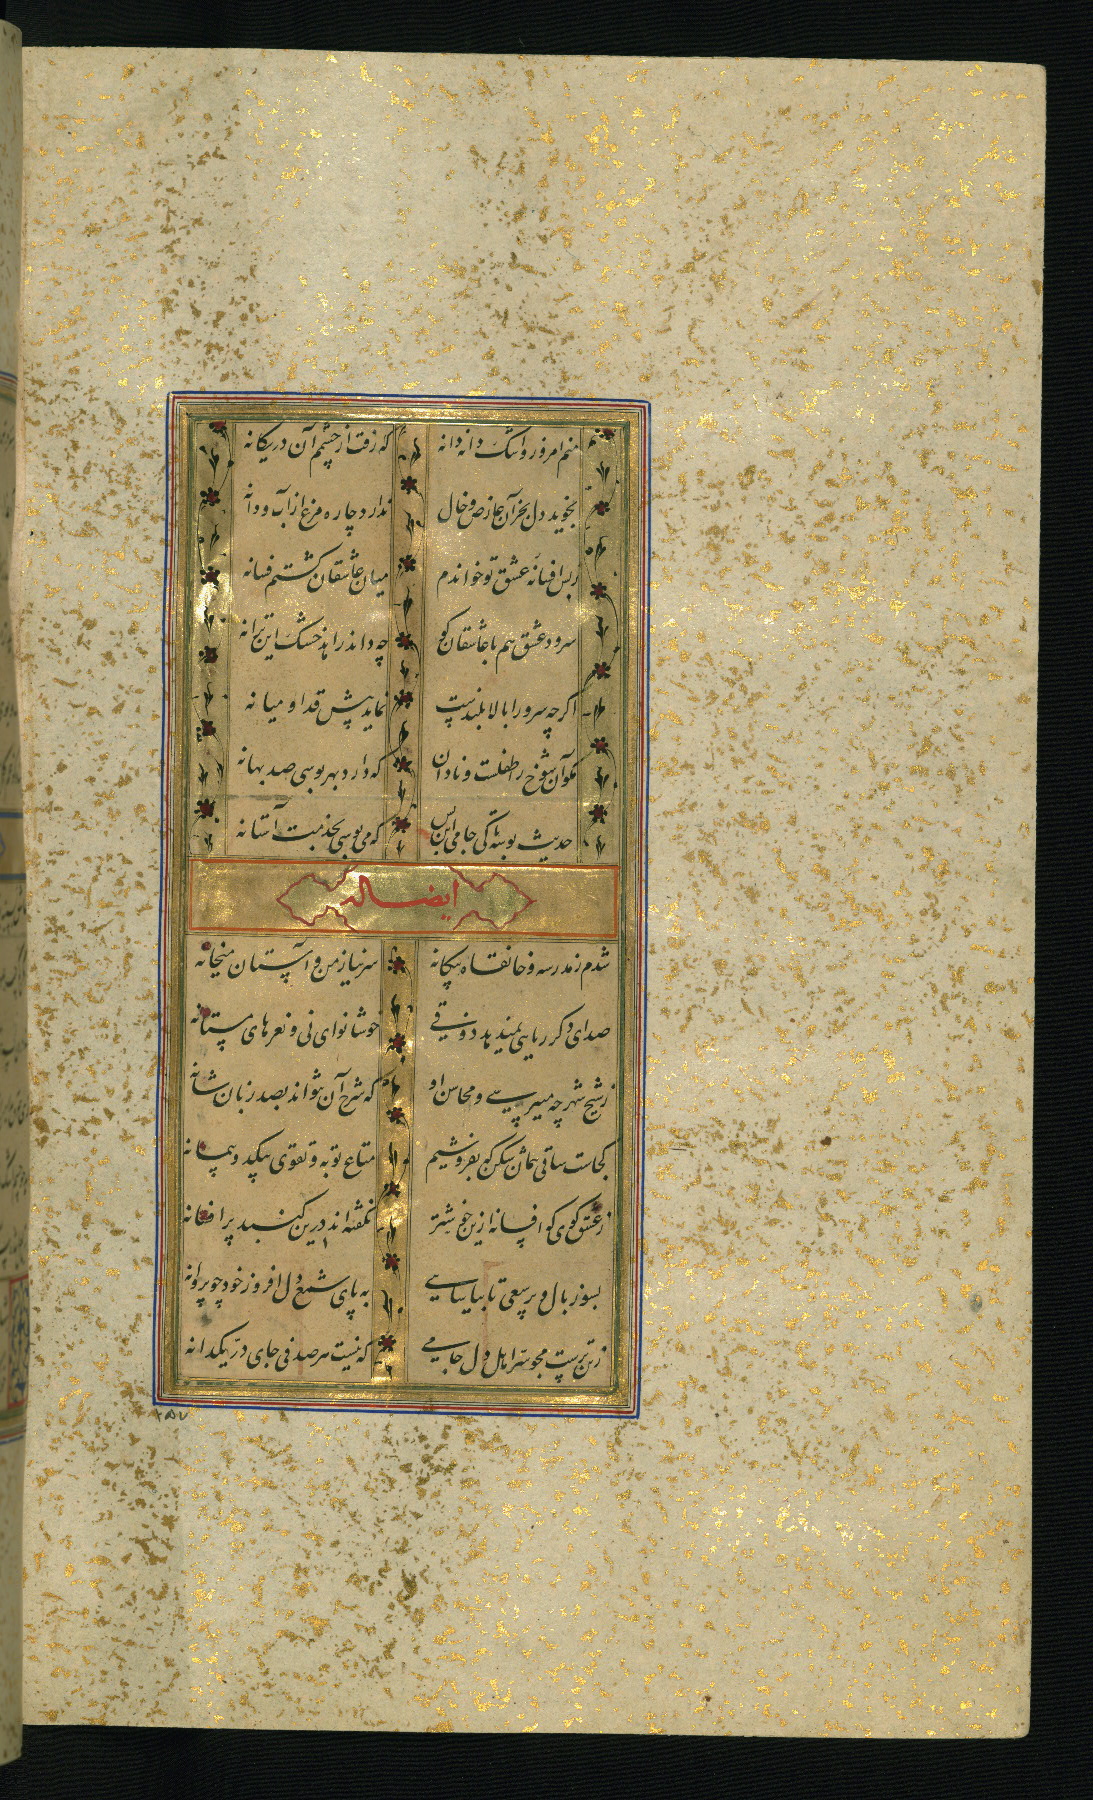 منم امروز و اشک دانه دانه که رفت از چشم آن در یکانه
نجوید دل بجز آن عارض و خال ندارد چاره مرغ از آب و دانه
زبس افسانه عشق تو خواندم میان عاشقان کشتم فسانه
سرود عشق هم با عاشقان کو چه داند زاهد خشک این ترانه
اکرچه سرو را بالا بلندست نماید پیش قد او میانه
مکو آن شوخ را طفلست و نادان که دارد بهر بوسی صد بهانه
حدیث بوسه تا کی جامی این بس که می بوسی بخدمت آستانه
ایضا له
شدم ز مدرسه و خانقاه بیکانه سر نیاز من و آستان میخانه
صدای ذکر ریایی نمیدهد ذوقی خوشا نوای نی و نعرهای مستانه
ز شیخ شهر چه میپرسی و محاسن او که شرح آن نتواند بصد زبان شانه
کجاست ساقی پیمان شکن که بفروشیم متاع توبه و تقوی بیک دو پیمانه
ز عشق کوی که افسانه ازین خوشتر نکفته اند درین کنبد پر افسانه
بسوز بال و پر سعی تا بیاسایی به پای شمع دل افروز خود چو پروانه
ز تن پرست مجو سر اهل دل جامی که نیست هر صدفی جای در یکدانه
۲۵۷